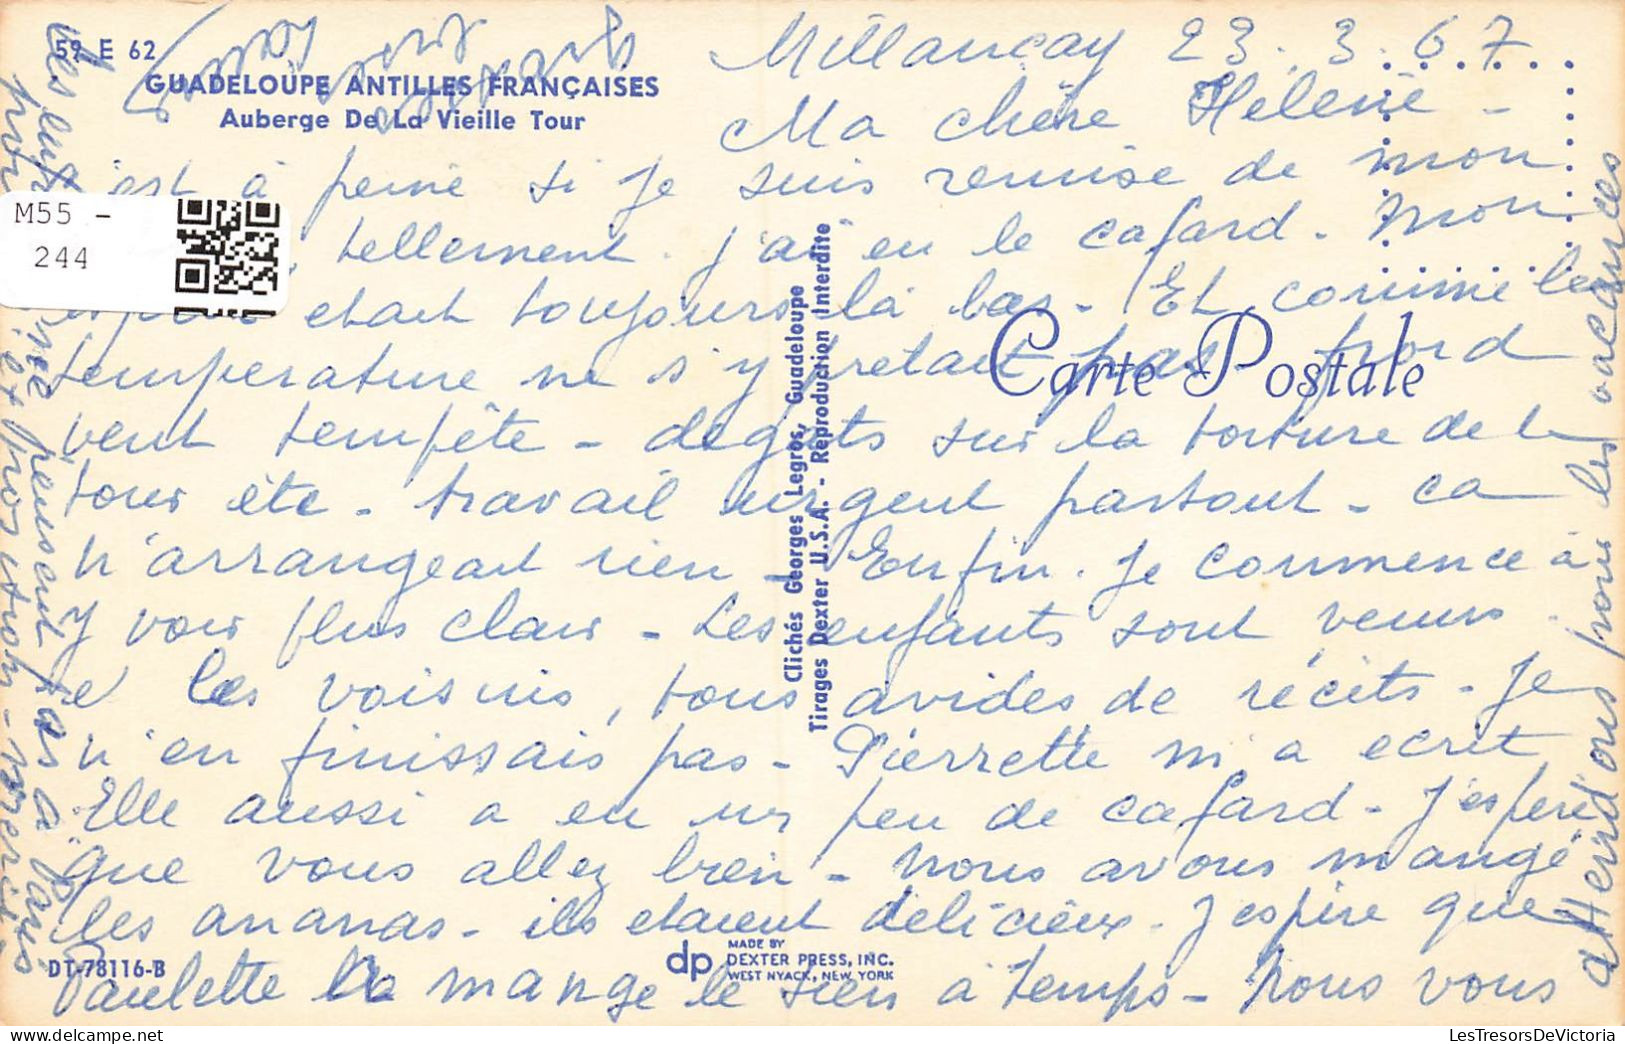 59 E 62
GUADELOUPE ANTILLES FRANÇAISES
Auberge De La Vieille Tour
Millançay 23.3.67
Ma chère Hélène -
est à peine si je suis remise de mon
tellement j'ai eu le cafard. Mon
était toujours là bas. Et comme la
temperature ne s'y pretait pas froid
vent tempête - degats sur la toiture de la
tour etc - travail urgent partout - ca
n'arrangeait rien - Enfin. Je commence à
y voir plus clair - Les enfants sont venus.
les voisins, tous avides de récits - Je
n'en finissais pas - Pierrette m'a ecrit
Elle aussi a eu un peu de cafard - J'espere
que vous allez bien - nous avons mangé
les ananas - ils etaient delicieux. J'espère que
Paulette la mange le sien à temps - Nous vous
attendons pour les vacances
pensent pas à Paris
M55 -
244
Carte Postale
Clichés Georges Legros, Guadeloupe
Tirages Dexter U.S.A. - Reproduction Interdite
DT-78116-B
dp
MADE BY
DEXTER PRESS, INC.
WEST NYACK, NEW YORK
LesTresorsDeVictoria.com